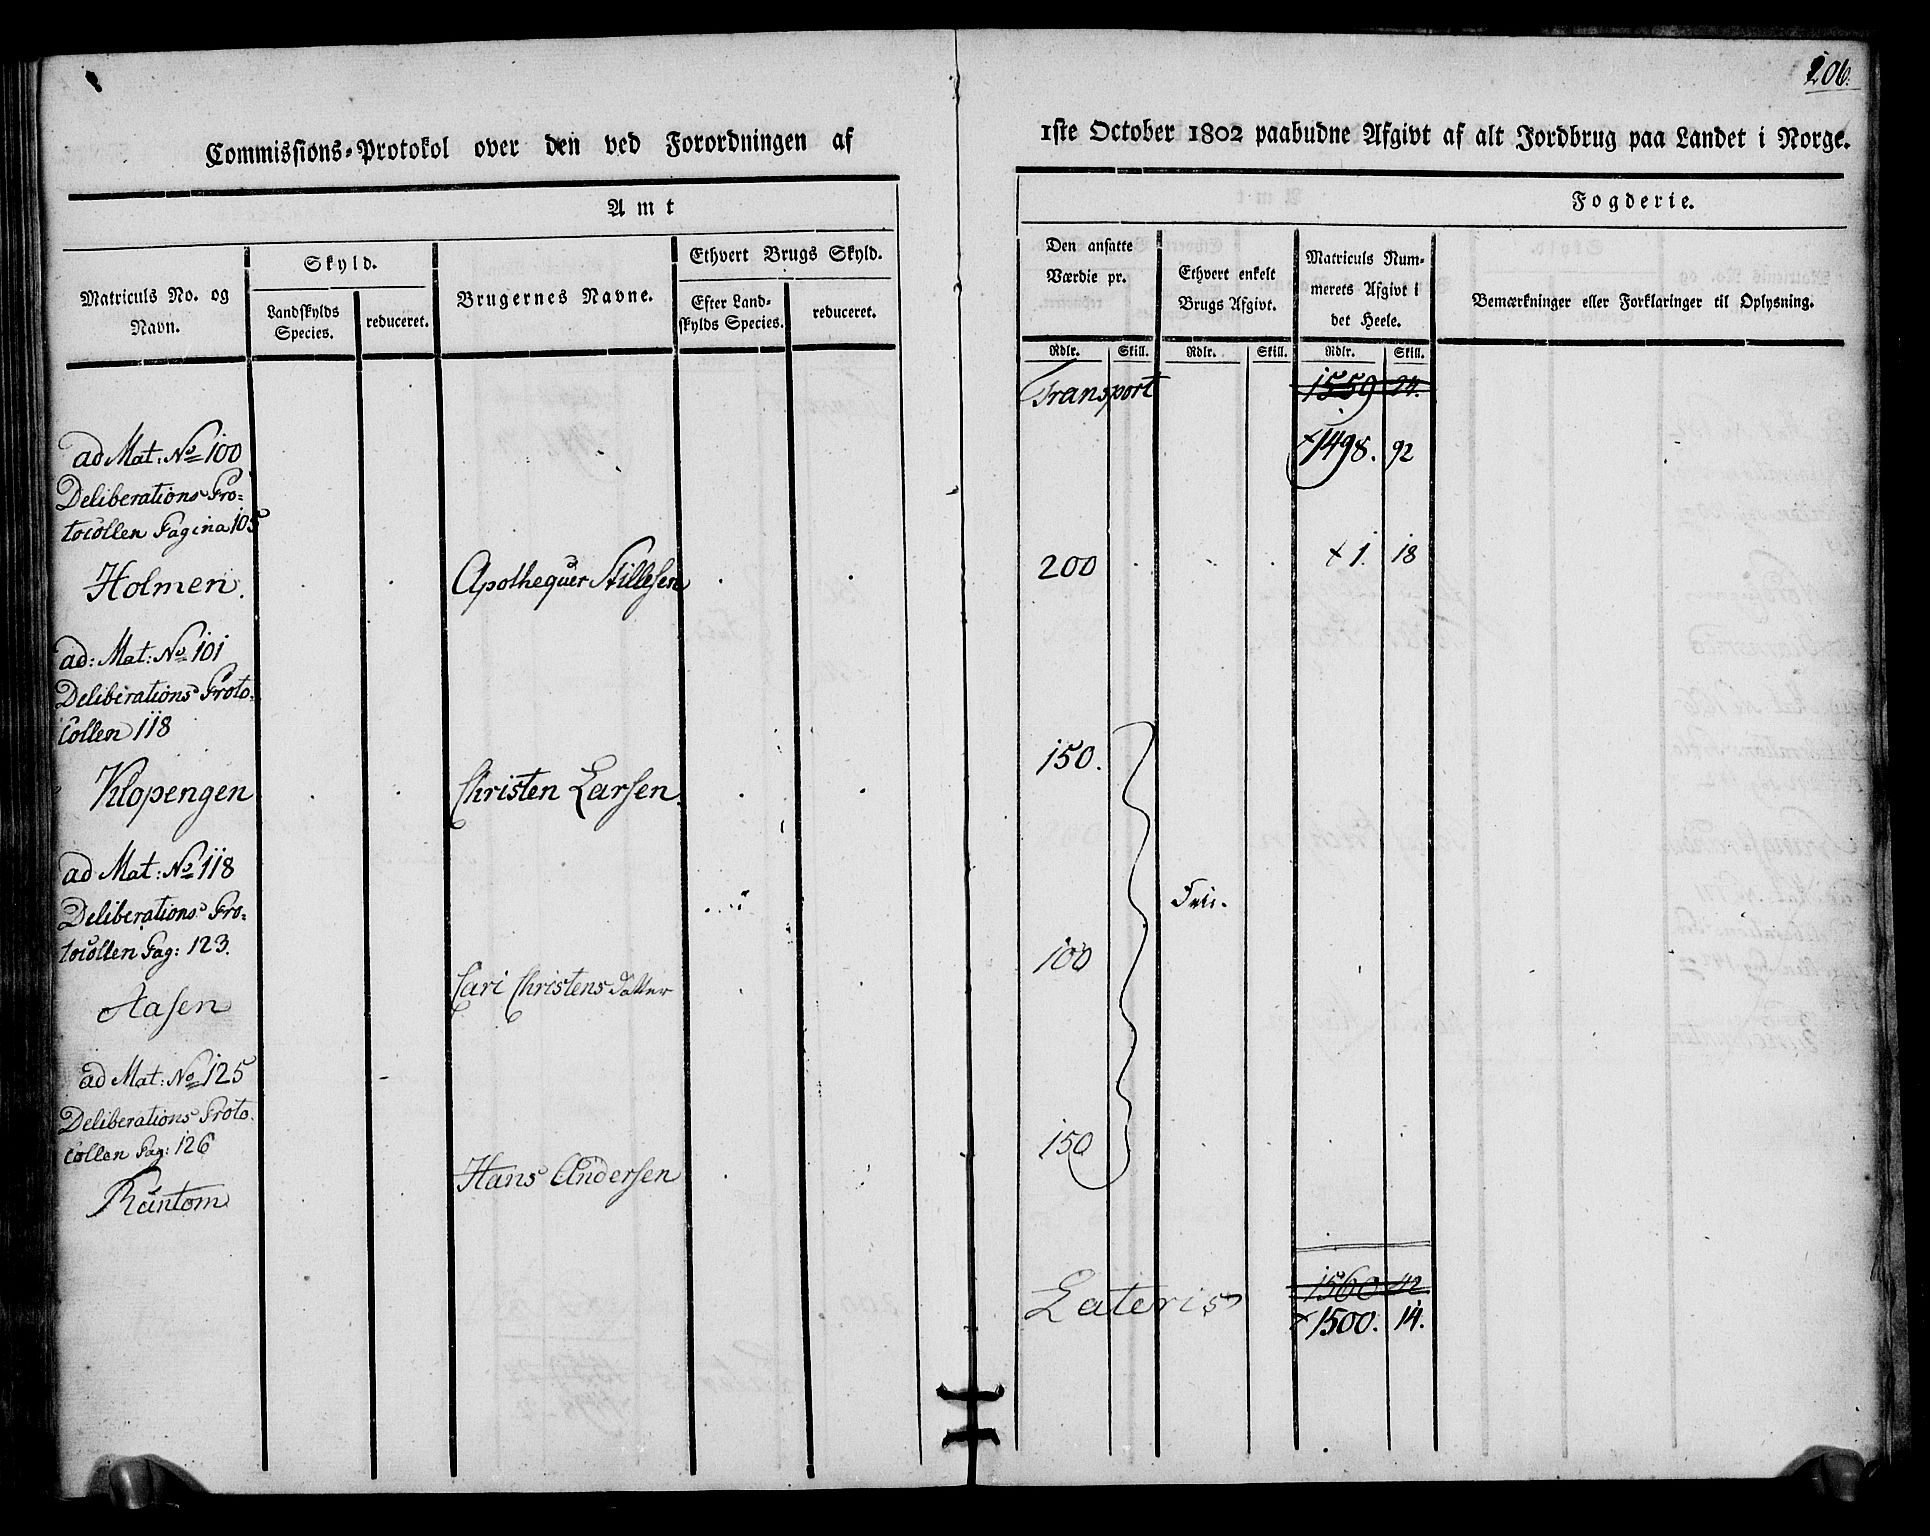 206.
Commissions-Protokol over den ved Forordningen af
1ste October 1802 paabudne Afgivt af alt Jordbrug paa Landet i Norge.
Amt
Fogderie.
Matriculs No. og
Navn.
Skyld.
Landskylds
Species.
reduceret.
Brugernes Navne.
Ethvert Brugs Skyld.
Efter Land-
skylds Species.
reduceret.
Den ansatte
Værdie pr.
Ethvert enkelt
Brugs Afgivt.
Matriculs Num-
merets Afgivt i
det Heele.
Bemærkninger eller Forklaringer til Oplysning.
Rdlr. Skill. Rdlr. Skill. Rdlr. Skill.
Transport 1559 24.
1498. 92
ad Mat: No 100
Deliberations Pro-
tocollen Pagina 105
Holmen. Apothequer Stillesen 200 1. 18
ad: Mat: No 101
Deliberations Proto-
Collen 118
Klopengen Christen Larsen. 150.
ad Mat: No 118
Deliberations Pro-
tocollen Pag: 123.
Aasen Cari Christens Datter 100 Frie.
ad Mat: No 125
Deliberations Proto-
Collen Pag: 126
Runtom Hans Andersen 150
Lateris 1560 42
1500. 14.